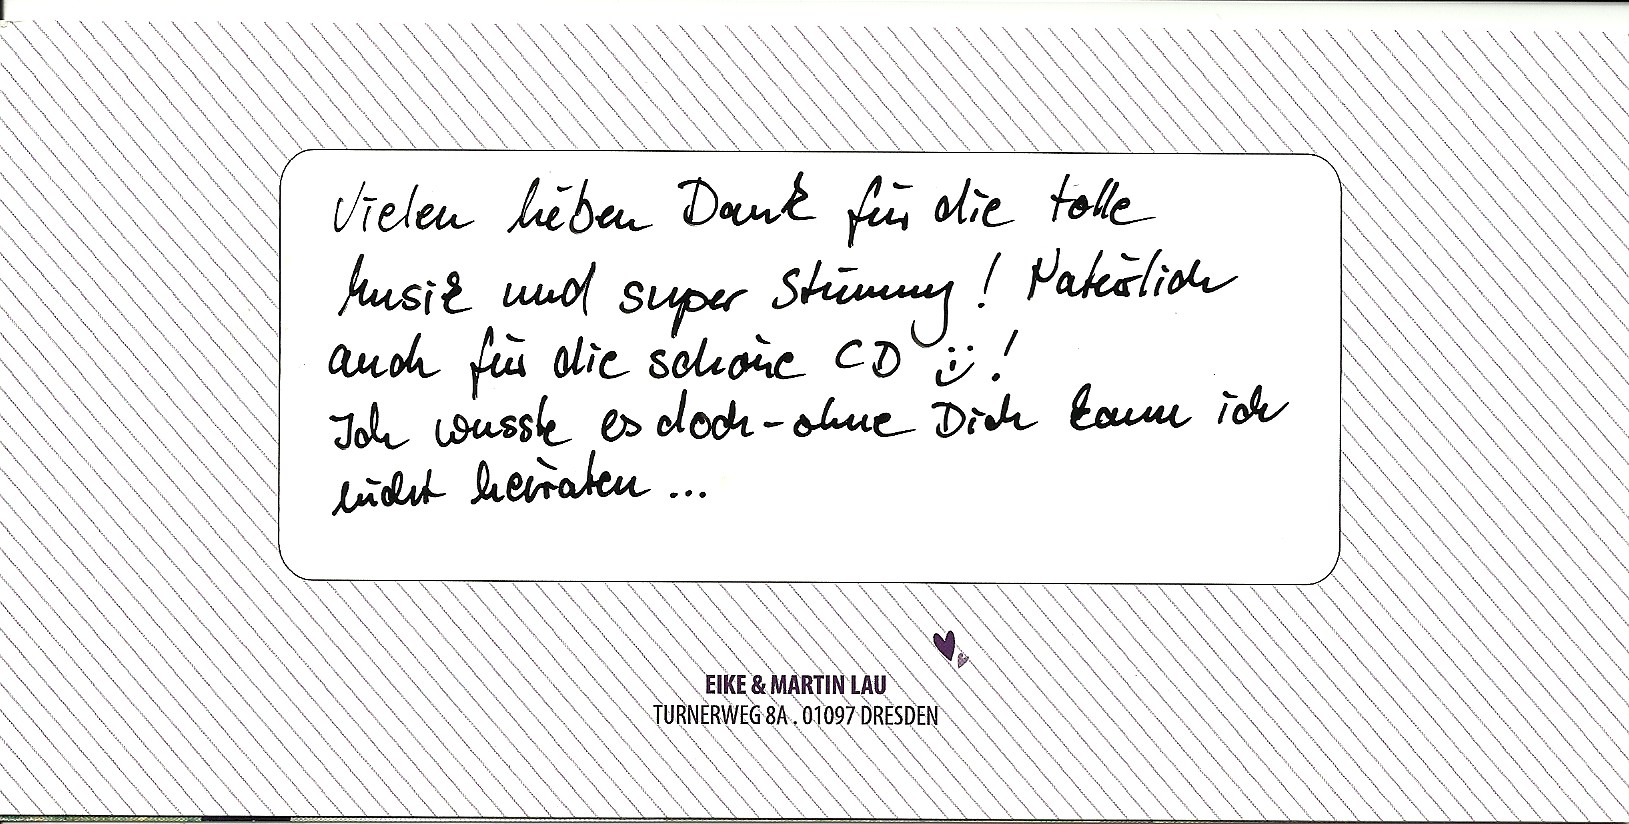 Vielen lieben Dank für die tolle
Musik und super Stimmung! Natürlich
auch für die schöne CD :)!
Ich wusste es doch - ohne Dich kann ich
nicht heiraten...
EIKE & MARTIN LAU
TURNERWEG 8A . 01097 DRESDEN